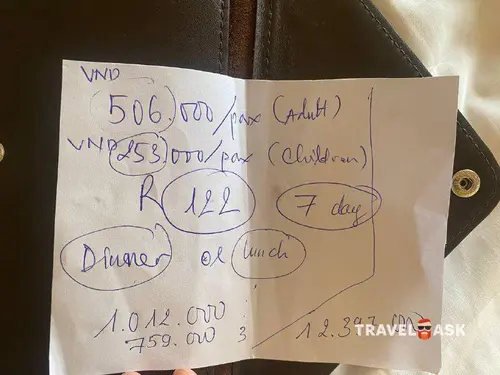 VND
506.000/pax (Adult)
VND 253.000/pax (Children)
R 122 7 day
Dinner or lunch
1.012.000
759.000 3
TRAVELASK